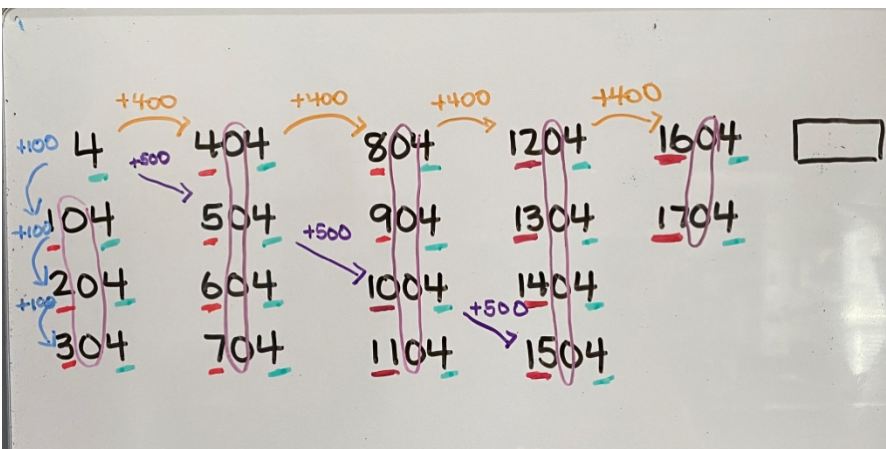 +400 +400 +400 +400
+100 4 404 804 1204 1604
+500
+100 104 504 904 1304 1704
+500
+100 204 604 1004 1404
+500
304 704 1104 1504